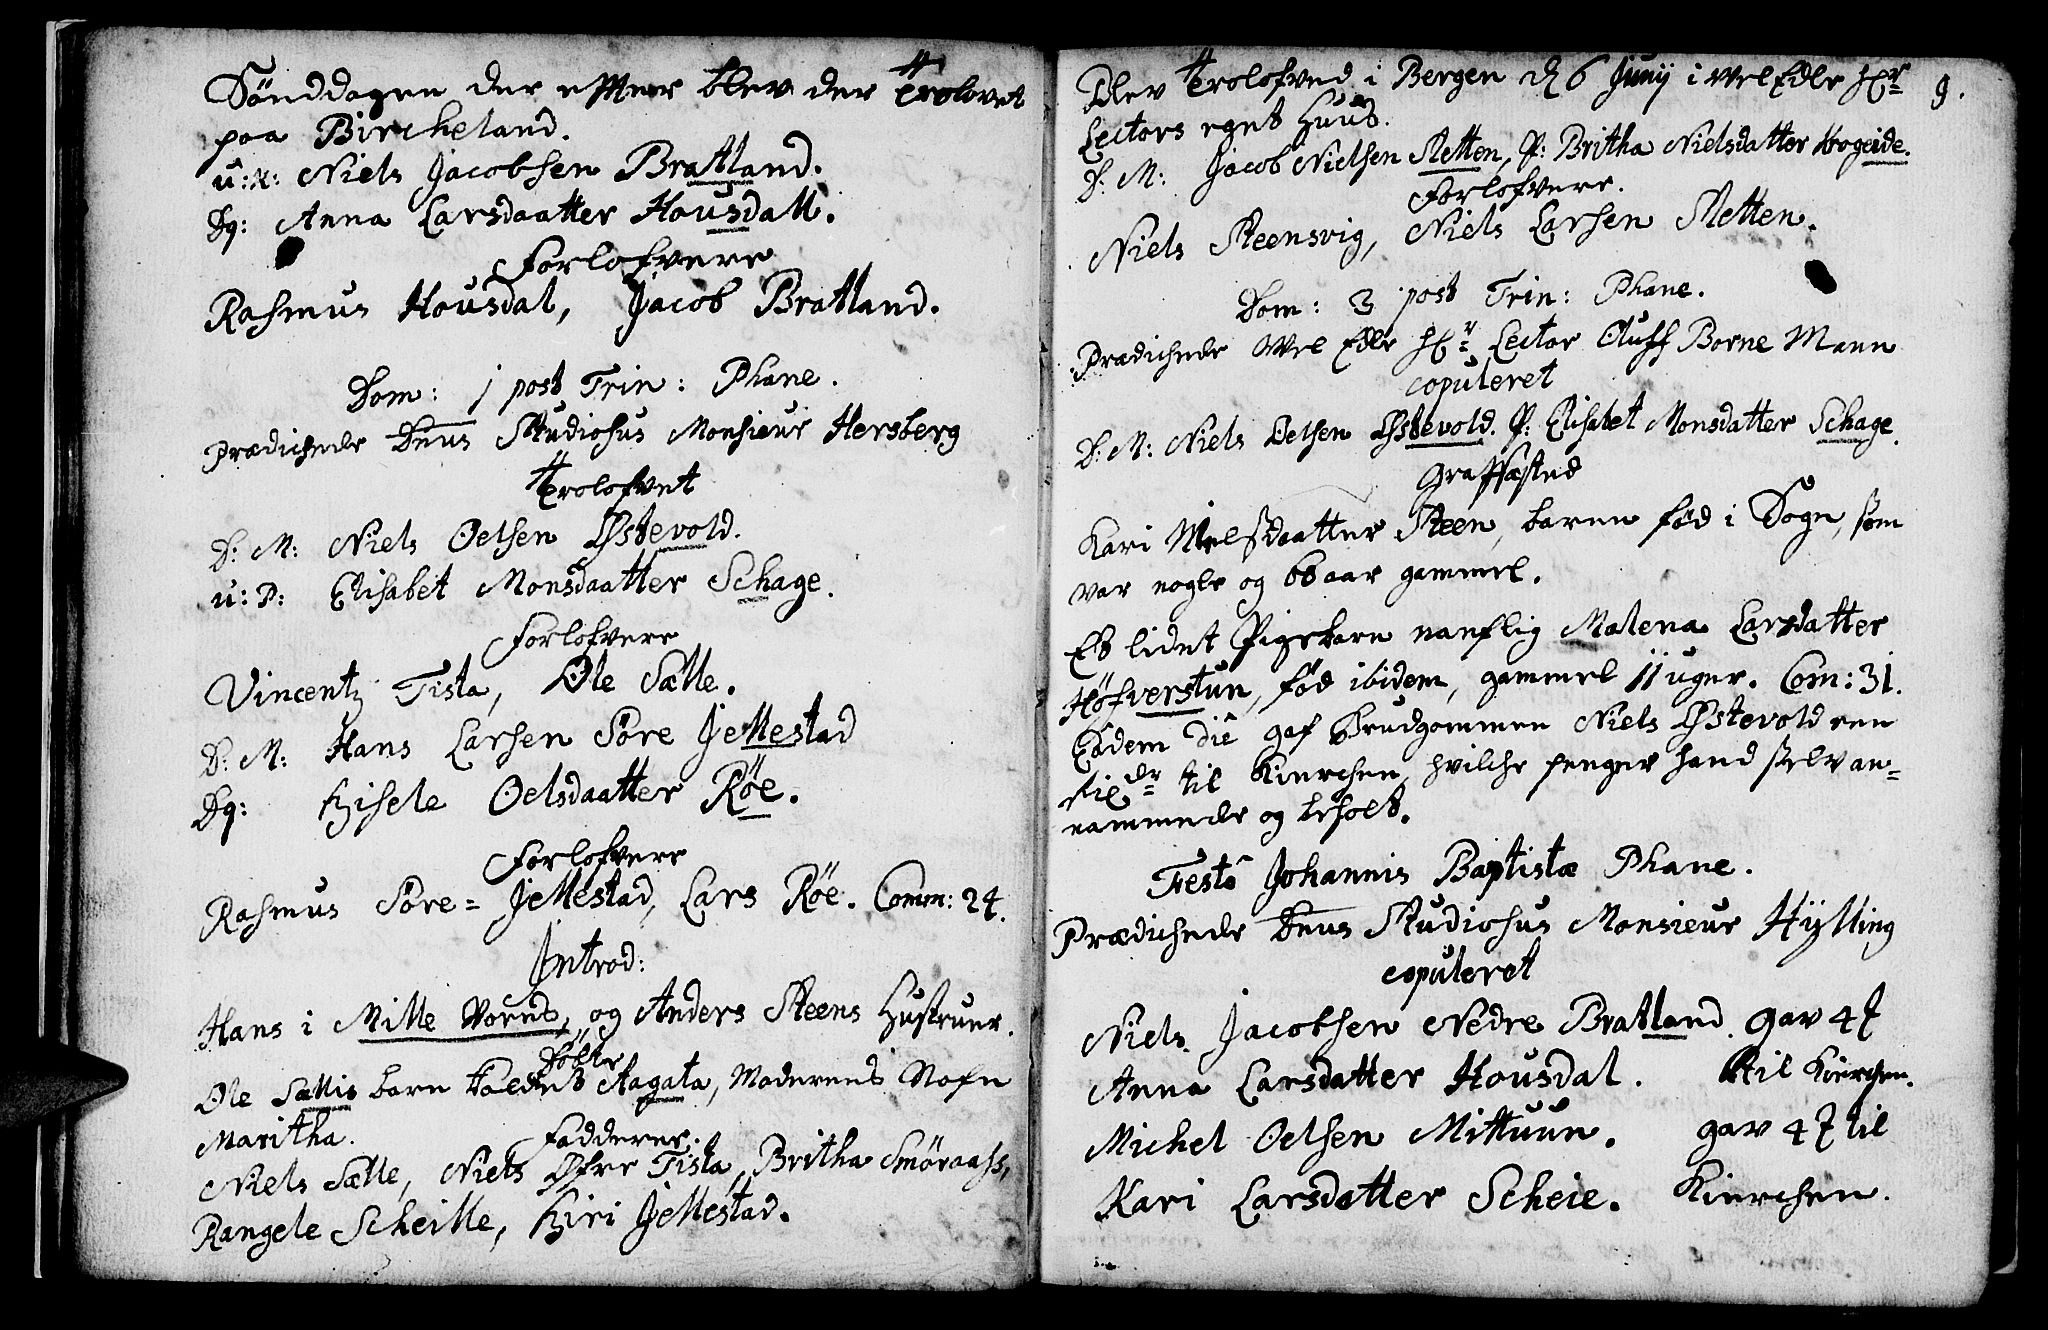 Sønddagen der efter blev der Trolovet
paa Bircheland.
u: K: Niels Jacobsen Bratland.
Dg: Anna Larsdaatter Housdall.
Forlofvere
Rasmus Housdal, Jacob Bratland.
Dom: 1 post Trin: Phane.
Prædichede Dnus Studiosus Monsieur Hersberg
Trolofvet
D: M: Niels Oelsen Østevold.
u: P: Elisabet Monsdaatter Schage.
Forlofvere
Vincentz Tista, Ole Sælle.
D: M: Hans Larsen Søre Jellestad
Dg: Gisele Oelsdaatter Røe.
Forlofvere
Rasmus Søre= Jellestad, Lars Røe. Comm: 24.
Introd:
Hans i Mille Vorns, og Anders Steens Hustruer.
Døbte
Ole Sællis barn kaldet Aagata, Moderens Nafn
Maritha.
Fadderer.
Niels Sælle, Niels Øfre Tista, Britha Smøraass,
Rangele Scheille, Giri Jellestad.
9.
Blev Trolofved i Bergen d 6 Junij i Vel Edle Hr
Lectors eget Huus.
D: M: Jacob Nielsen Sletten, P: Britha Nielsdatter Krogeide.
Forlofvere.
Niels Steensvig, Niels Larsen Sletten.
Dom: 3 post Trin: Phane.
Prædichede Vel Edle Hr Lector Oluff Borne Mann
copuleret
D: M: Niels Oelsen Østevold. P: Elisabet Monsdatter Schage.
Graffæsted
Kari Nielsdaatter Steen, baren fød i Sogn, som
var nogle og 60 aar gammel.
Et lidet Pigebarn nanflig Malena Larsdatter
Høfverstun, fød ibidem, gammel 11 uger. Com: 31.
Eodem die gaf Brudgommen Niels Østevold een
til Kierchen, hvilche penger hand self an=
nammede og beholt.
Festo Johannis Baptistæ Phane.
Prædichede Dnus Studiosus Monsieur Hÿlling
copuleret
Niels Jacobsen Nedre Bratland. gav 4
Anna Larsdatter Housdal. til Kierchen.
Michel Oelsen Mittuun. gav 4 til
Kari Larsdatter Scheie. Kierchen.